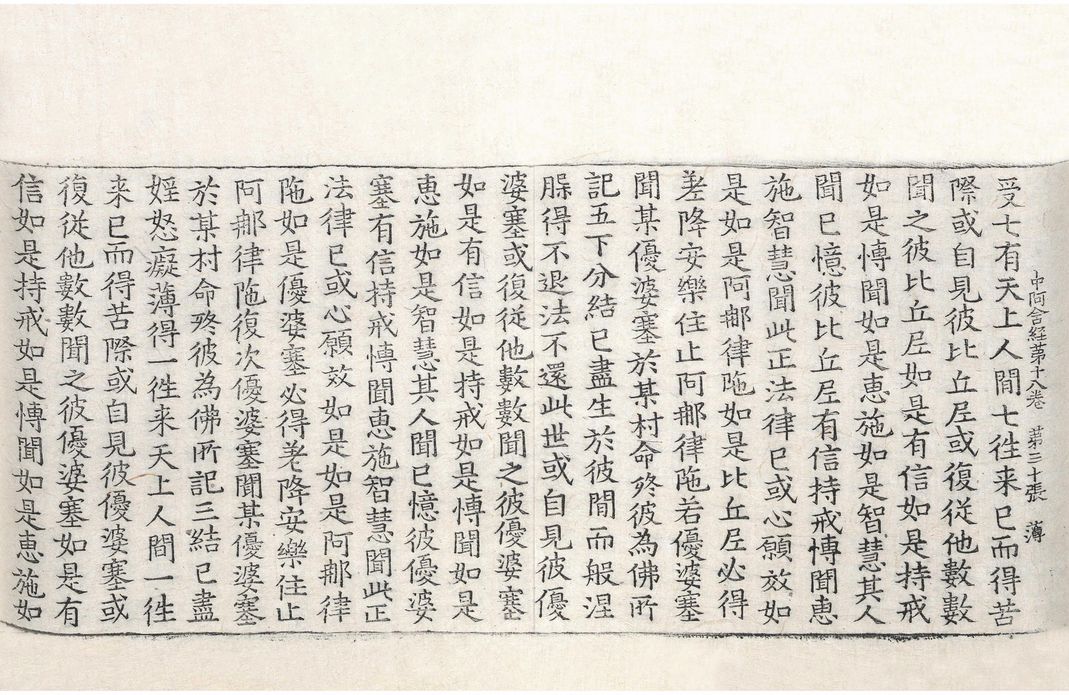 中阿含経苐十八卷 苐三十張 薄
受七有天上人間七徃来已而得苦
際或自見彼比丘𡰱或復従他數數
聞之彼比丘𡰱如是有信如是持戒
如是愽聞如是恵施如是智慧其人
聞已憶彼比丘𡰱有信持戒愽聞恵
施智慧聞此正法律已或心願效如
是如是阿𨚗律陁如是比丘𡰱必得
差降安樂住止阿𨚗律陁若優婆塞
聞某優婆塞於某村命終彼為佛所
記五下分結已盡生於彼間而般涅
槃得不退法不還此世或自見彼優
婆塞或復従他數數聞之彼優婆塞
如是有信如是持戒如是愽聞如是
恵施如是智慧其人聞已憶彼優婆
塞有信持戒愽聞恵施智慧聞此正
法律已或心願效如是如是阿𨚗律
陁如是優婆塞必得差降安樂住止
阿𨚗律陁復次優婆塞聞某優婆塞
於某村命終彼為佛所記三結已盡
婬怒癡薄得一徃来天上人間一徃
来已而得苦際或自見彼優婆塞或
復従他數數聞之彼優婆塞如是有
信如是持戒如是愽聞如是恵施如